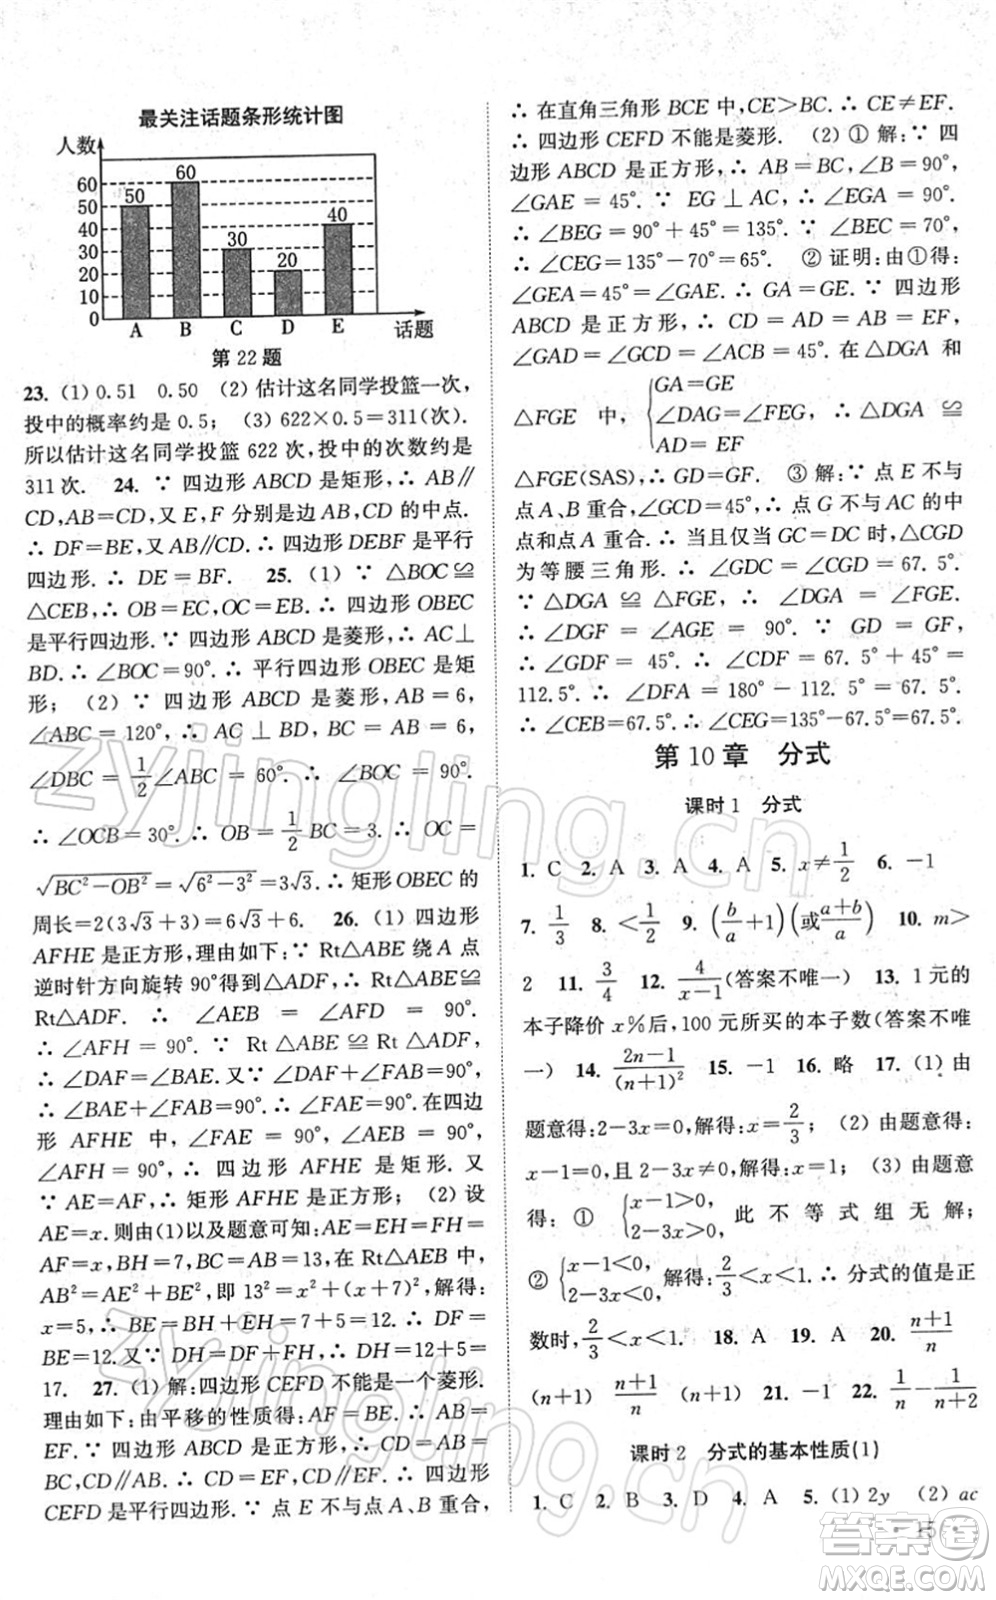 最关注话题条形统计图
人数
60
50
40
30
20
10
0
50
60
30
20
40
A B C D E 话题
第 22 题
23. (1) 0.51 0.50 (2) 估计这名同学投篮一次,
投中的概率约是 0.5; (3) 622×0.5=311(次).
所以估计这名同学投篮 622 次,投中的次数约是
311 次. 24. ∵ 四边形 ABCD 是矩形,∴ AB∥
CD,AB=CD,又 E,F 分别是边 AB,CD 的中点.
∴ DF=BE,又 AB∥CD.∴ 四边形 DEBF 是平行
四边形.∴ DE=BF. 25. (1) ∵ △BOC≌
△CEB,∴ OB=EC,OC=EB.∴ 四边形 OBEC
是平行四边形.∵ 四边形 ABCD 是菱形,∴ AC⊥
BD.∴ ∠BOC=90°.∴ 平行四边形 OBEC 是矩
形; (2) ∵ 四边形 ABCD 是菱形,AB=6,
∠ABC=120°,∴ AC⊥BD,BC=AB=6,
∠DBC=1/2∠ABC=60°.∴ ∠BOC=90°.
∴ ∠OCB=30°.∴ OB=1/2BC=3.∴ OC=
√(BC²−OB²)=√(6²−3²)=3√3.∴ 矩形 OBEC 的
周长=2(3√3+3)=6√3+6. 26. (1) 四边形
AFHE 是正方形,理由如下:∵ Rt△ABE 绕 A 点
逆时针方向旋转 90°得到△ADF,∴ Rt△ABE≌
Rt△ADF.∴ ∠AEB=∠AFD=90°.
∴ ∠AFH=90°.∵ Rt△ABE≌Rt△ADF,
∴ ∠DAF=∠BAE.又∵ ∠DAF+∠FAB=90°,
∴ ∠BAE+∠FAB=90°.∴ ∠FAE=90°.在四边
形 AFHE 中,∠FAE=90°,∠AEB=90°,
∠AFH=90°,∴ 四边形 AFHE 是矩形.又
∵ AE=AF,∴ 矩形 AFHE 是正方形; (2) 设
AE=x.则由(1)以及题意可知:AE=EH=FH=
AF=x,BH=7,BC=AB=13,在 Rt△AEB 中,
AB²=AE²+BE²,即 13²=x²+(x+7)²,解得:
x=5,∴ BE=BH+EH=7+5=12.∴ DF=
BE=12.又∵ DH=DF+FH,∴ DH=12+5=
17. 27. (1) 解:四边形 CEFD 不可能是一个菱形.
理由如下:由平移的性质得:AF=BE.∴ AB=
EF.∵ 四边形 ABCD 是正方形,∴ AB=CD=
BC,CD∥AB.∴ CD=EF,CD∥EF.∴ 四边形
CEFD 是平行四边形.∵ 点 E 不与点 A、B 重合,
∴ 在直角三角形 BCE 中,CE>BC.∴ CE≠EF.
∴ 四边形 CEFD 不可能是菱形. (2) ① 解:∵ 四
边形 ABCD 是正方形,∴ AB=BC,∠B=90°,
∠GAE=45°.∵ EG⊥AC,∴ ∠EGA=90°.
∴ ∠BEG=90°+45°=135°.∵ ∠BEC=70°,
∴ ∠CEG=135°−70°=65°. ② 证明:由①得:
∠GEA=45°=∠GAE.∴ GA=GE.∵ 四边形
ABCD 是正方形,∴ CD=AD=AB=EF,
∠GAD=∠GEF=∠ACB=45°.在△DGA 和
△FGE 中,{GA=GE ∠DAG=∠FEG ∴ △DGA≌ AD=EF
△FGE(SAS),∴ GD=GF. ③ 解:∵ 点 E 不与
点A、B 重合,∠GCD=45°,∴ 点 G 不与 AC 的中
点和点A 重合.∴ 仅当 GC=DC 时,△CDG
为等腰三角形.∴ ∠GDC=∠CGD=67.5°.
∵ △DGA≌△FGE,∴ ∠DGA=∠FGE.
∴ ∠DGF=∠AGE=90°.∵ GD=GF,
∴ ∠GDF=45°.∴ ∠CDF=67.5°+45°=
112.5°.∴ ∠DFA=180°−112.5°=67.5°.
∴ ∠CEB=67.5°.∴ ∠CEG=135°−67.5°=67.5°.
第 10 章 分式
课时 1 分式
1. C 2. A 3. A 4. A 5. x≠1/2 6. −1
7. 1/3 8. <1/2 9. (b/a+1)(或(a+b)/a) 10. m>
2 11. 3/4 12. 4/(x−1)(答案不唯一) 13. 1 元的
本子降价 x%后,100 元所买的本子数(答案不唯
一) 14. (2n−1)/(n+1)² 15. −1 16. 略 17. (1) 由
题意得:2−3x=0,解得:x=2/3; (2) 由题意得:
x−1=0,且 2−3x≠0,解得:x=1; (3) 由题意
得: ① {x−1>0, 2−3x>0, 此不等式组无解;
② {x−1<0, 2−3x<0, 解得:2/3<x<1.∴ 分式的值是正
数时,2/3<x<1. 18. A 19. A 20. (n+1)/n
(n+1) (n+1)/n (n+1) 21. −1 22. 1/n−1/(n+2)
课时 2 分式的基本性质(1)
1. C 2. B 3. D 4. A 5. (1) 2y (2) ac
15
zyjingling.cn
zyjingling.cn
答案圈
MXQE.COM